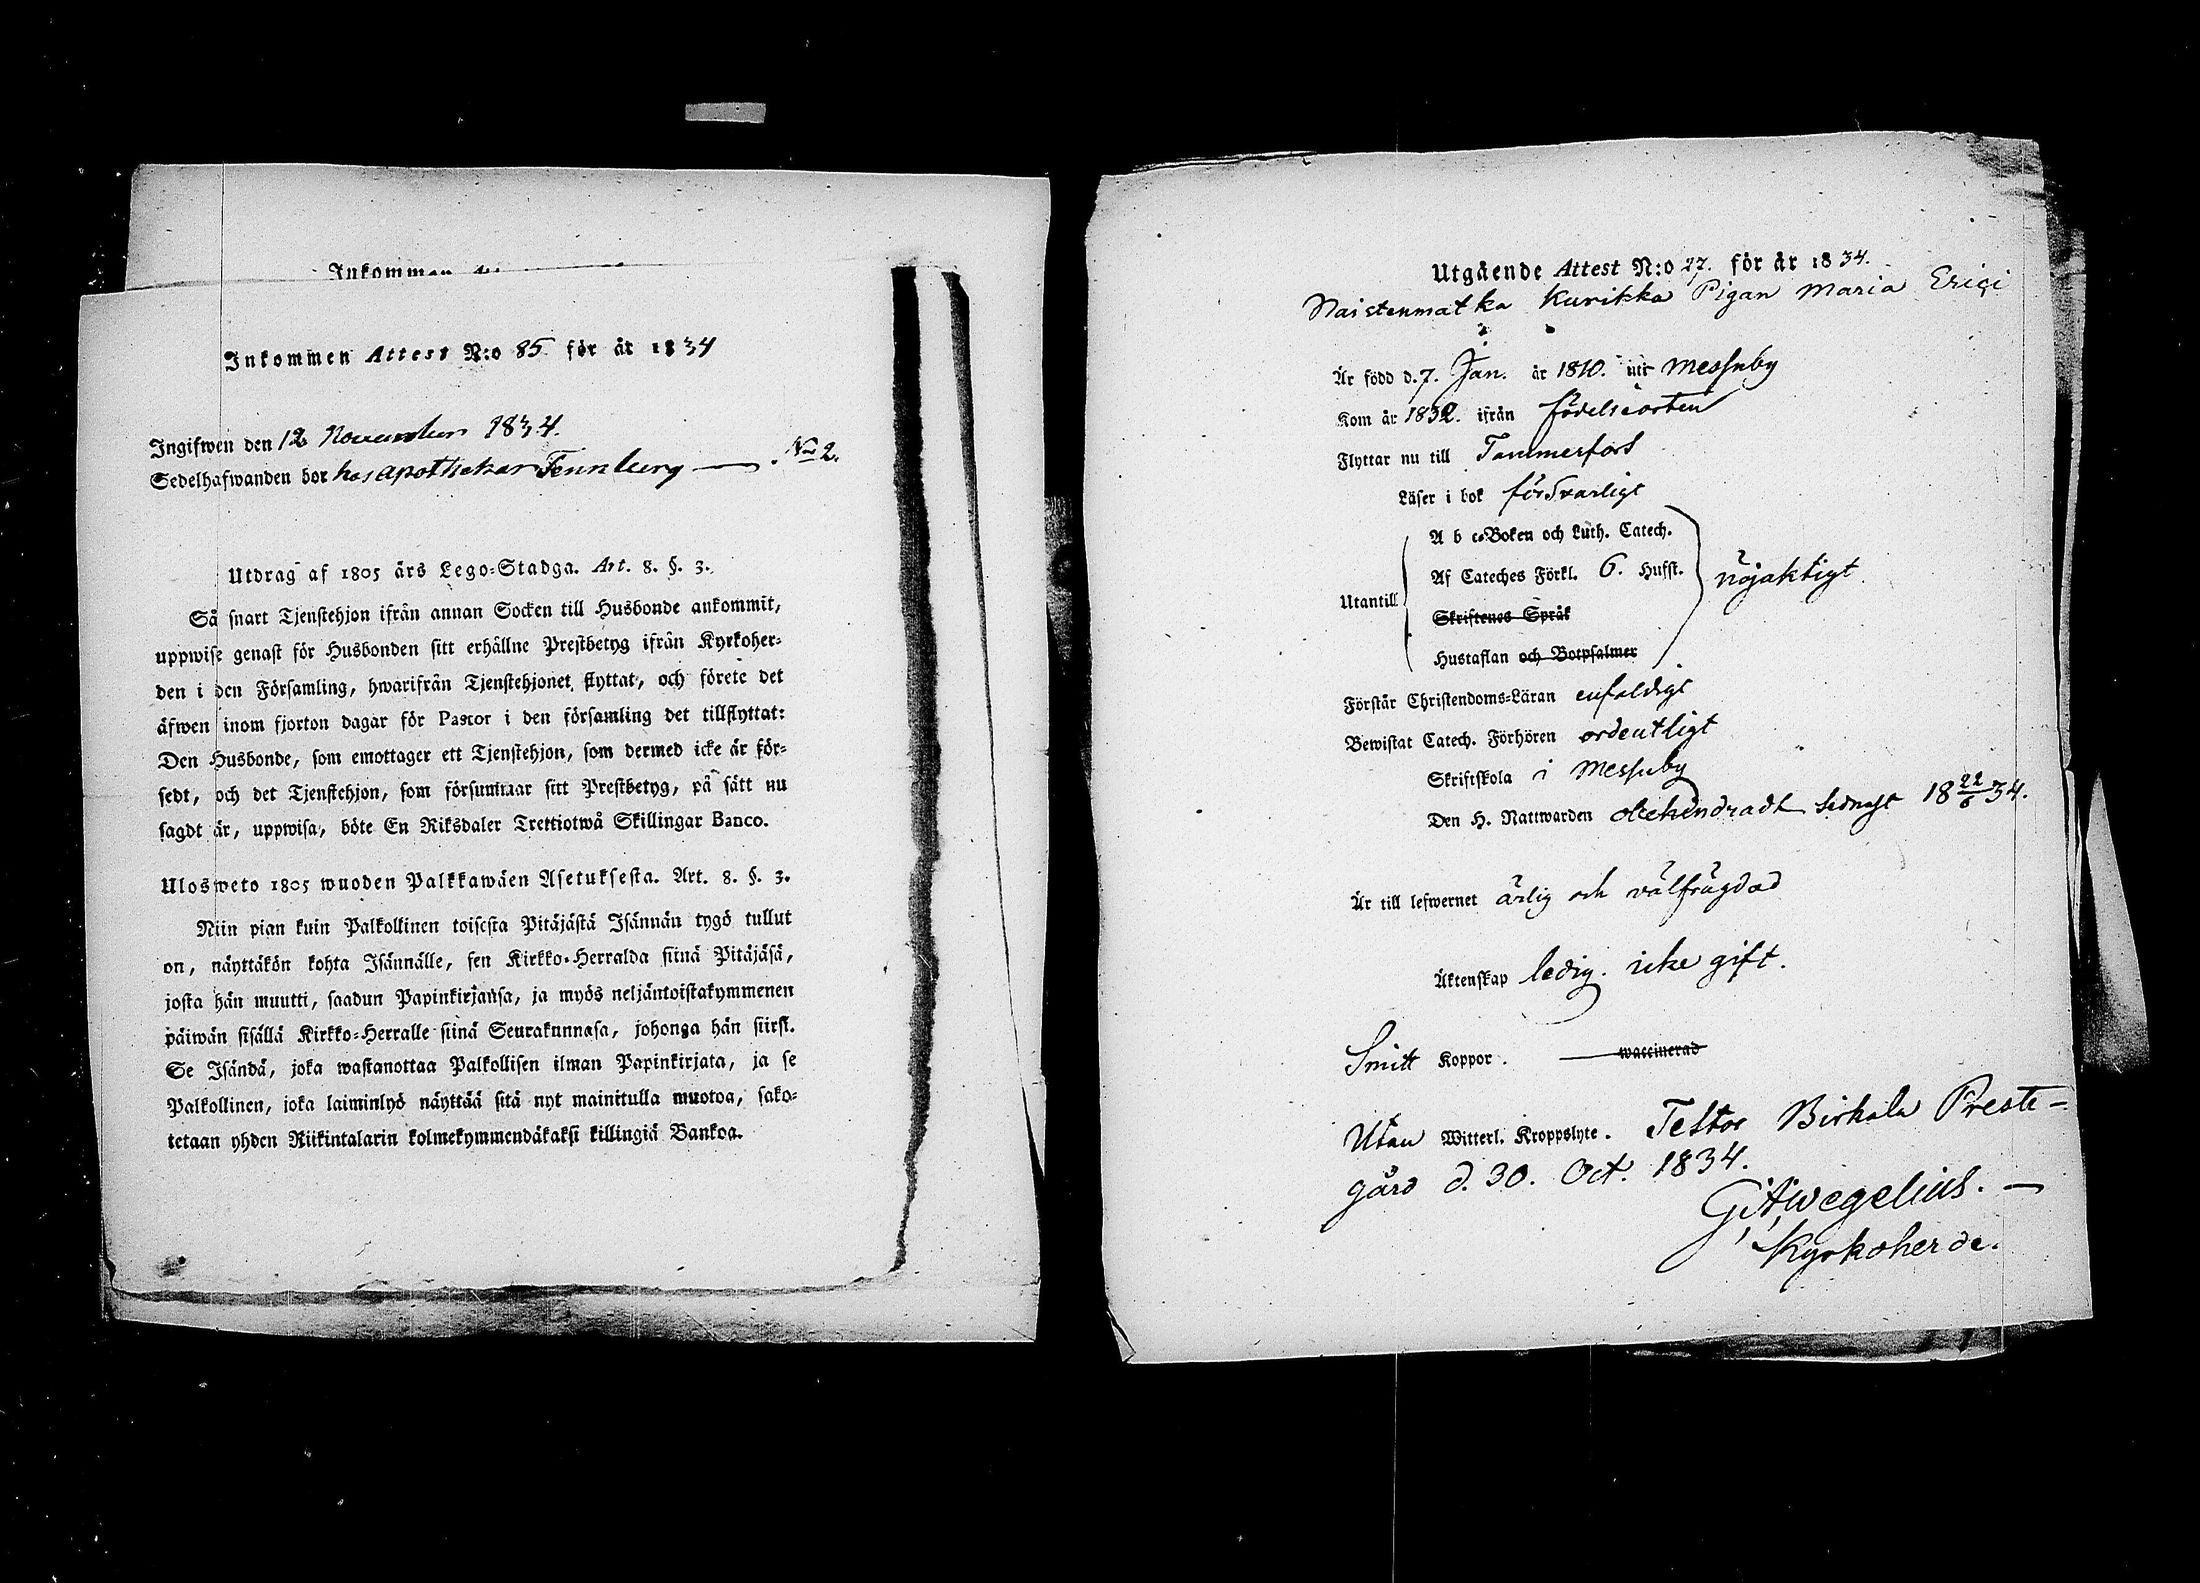 Inkommen
Inkommen Attest N:o 85 för år 1834
Ingifwen den 12 November 1834.
Sedelhafwanden bor hos apothekar Tennberg — No 2.
Utdrag af 1805 års Lego-Stadga. Art. 8. §. 3.
Så snart Tjenstehjon ifrån annan Socken till Husbonde ankommit,
uppwise genast för Husbonden sitt erhållne Prestbetyg ifrån Kyrkoher-
den i den Församling, hwarifrån Tjenstehjonet flyttat, och förete det
äfwen inom fjorton dagar för Pastor i den församling det tillflyttat:
Den Husbonde, som emottager ett Tjenstehjon, som dermed icke är för-
sedt, och det Tjenstehjon, som försummar sitt Prestbetyg, på sätt nu
sagdt är, uppwisa, böte En Riksdaler Trettiotwå Skillingar Banco.
Ulosweto 1805 wuoden Palkkawäen Asetuksesta. Art. 8. §. 3.
Niin pian kuin Palkollinen toisesta Pitäjästä Isännän tygö tullut
on, näyttäkön kohta Isännälle, sen Kirkko-Herralda siinä Pitäjäsä,
josta hän muutti, saadun Papinkirjansa, ja myös neljäntoistakymmenen
päiwän sisällä Kirkko-Herralle siinä Seurakunnasa, johonga hän siirst.
Se Isändä, joka wastanottaa Palkollisen ilman Papinkirjata, ja se
Palkollinen, joka laiminlyö näyttää sitä nyt mainitulla muotoa, sako-
tetaan yhden Riikintalarin kolmekymmendäkaksi killingiä Bankoa.
Utgående Attest N:o 27. för år 1834.
Naistenmatka Kurikka Pigan Maria Erici
Är född d. 7. Jan. år 1810. uti Messuby
Kom år 1832. ifrån födelseorten
Flyttar nu till Tammerfors
Läser i bok försvarligt
A b c-Boken och Luth. Catech.
Af Cateches Förkl. 6. Hufst. nöjaktigt
Utantill
Skriftenes Språk
Hustaflan och Botpsalmer
Förstår Christendoms-Läran enfaldigt
Bewistat Catech. Förhören ordentligt
Skriftskola i Messuby
Den H. Nattwarden oklandradt sednast 18 22/6 34.
Är till lefwernet ärlig och välfrägdad
Äktenskap ledig. icke gift.
Smitt Koppor. — waccinerad
Utan Witterl. Kroppslyte. Testor Birkala Preste-
gård d. 30. Oct. 1834.
G. A. Wegelius. —
Kyrkoherde.